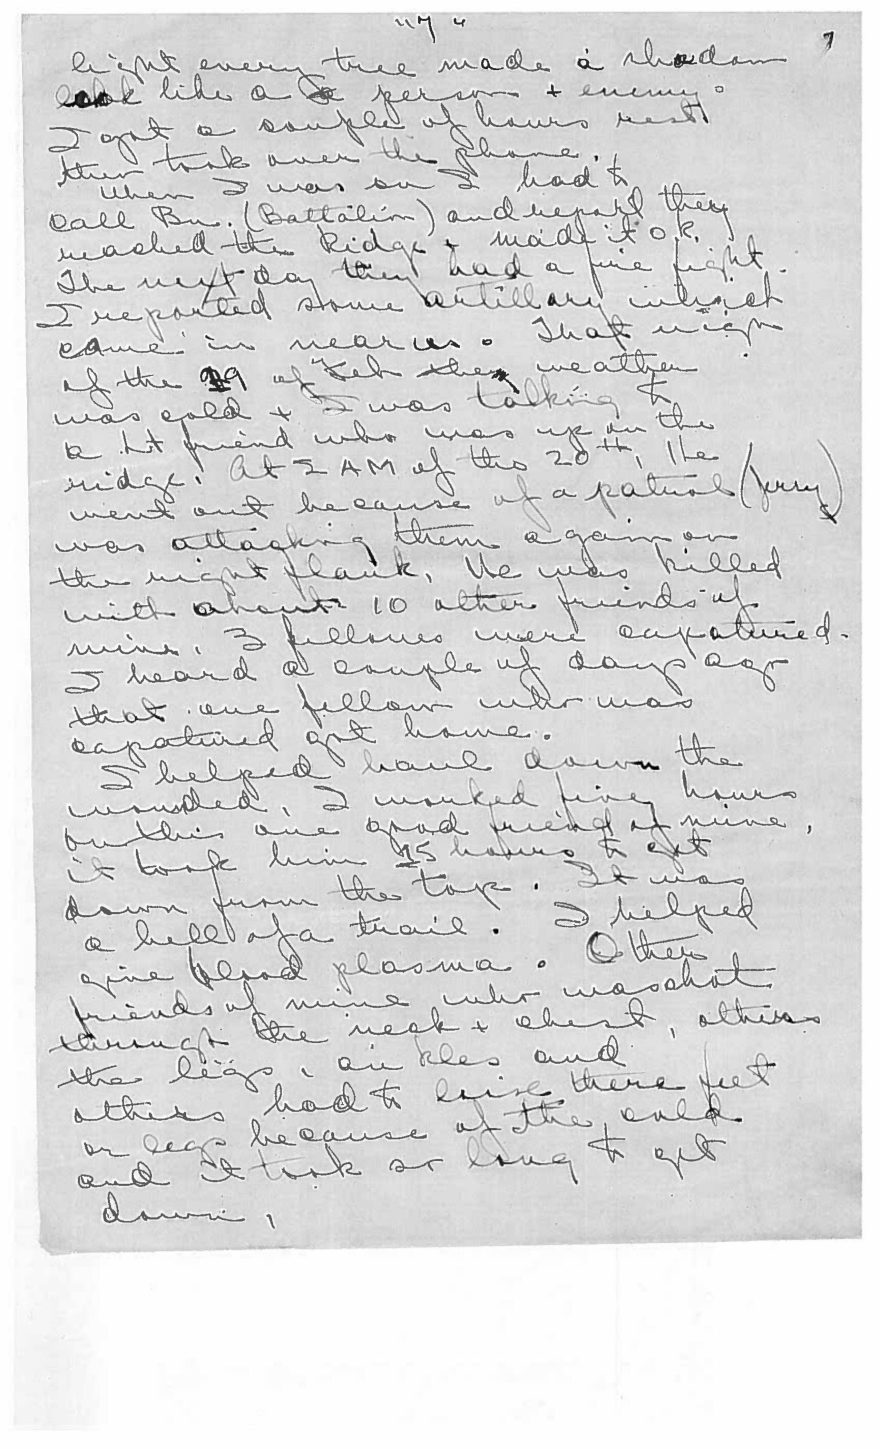 "7" 7
light every tree made a shadow
look like a person + enemy.
I got a couple of hours rest
then took over the phone.
When I was on I had to
call Bn. (Battalion) and report they
reached the Ridge + made it O.K.
The next day they had a fire fight.
I reported some artillary which
came in near us. That nigh
of the 19 of Feb the weather
was cold + I was talking to
a Lt friend who was up on the
ridge. At 2 AM of the 20th, He
went out because of a patrol (Jerry)
was attacking them again on
the right flank. He was killed
with about 10 other friends of
mine. 3 fellows were capatured.
I heard a couple of days ago
that one fellow who was
capatured got home.
I helped haul down the
wounded. I worked five hours
on this one good friend of mine,
it took him 15 hours to get
down from the top. It was
a hell of a trail. I helped
give blood plasma. Other
friends of mine who was shot
through the neck + chest, others
the legs, ankles and
others had to loise there feet
or legs because of the cold
and it took so long to get
down.